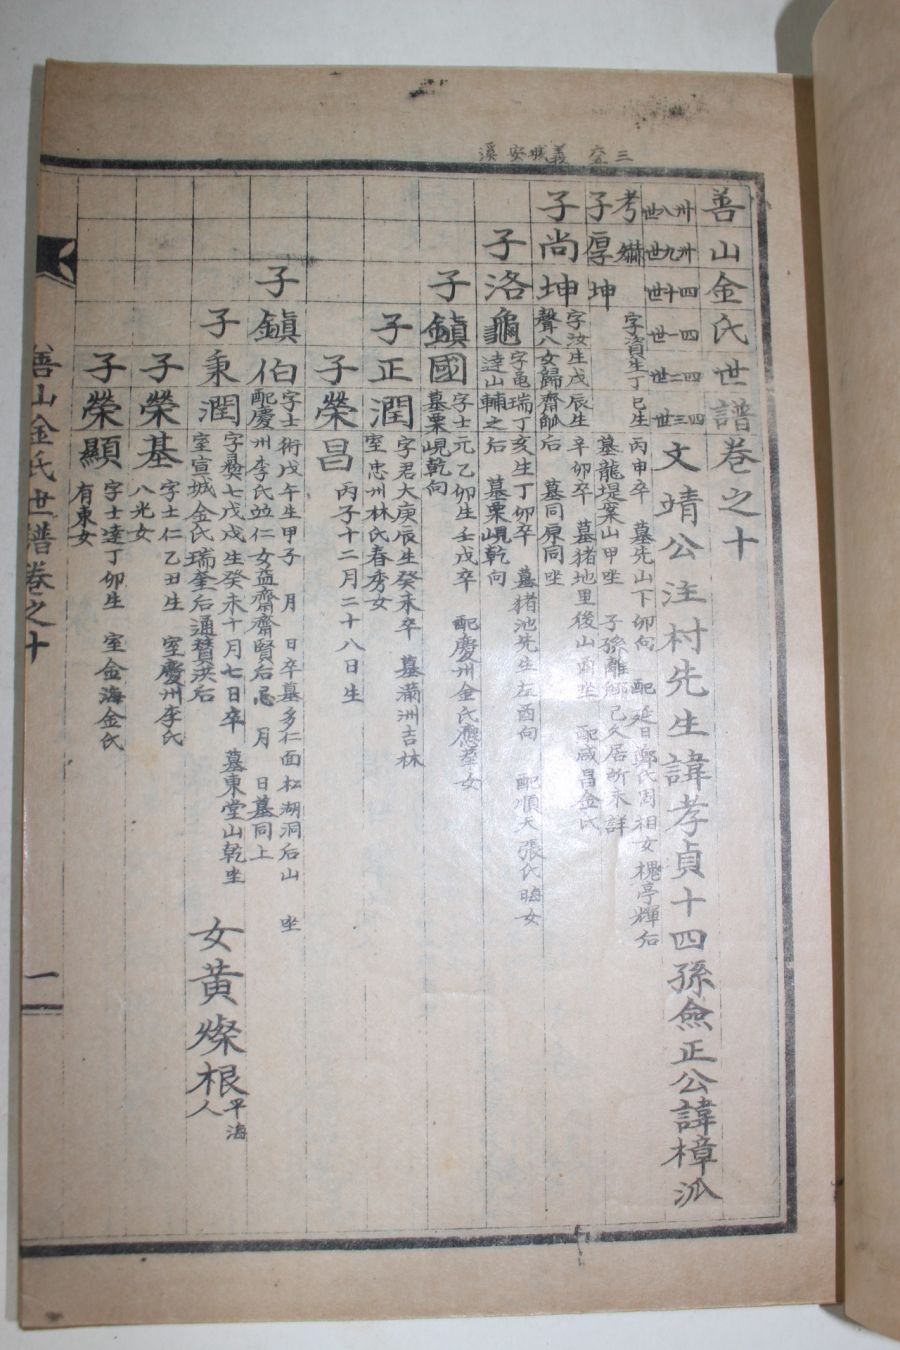 三 義城安溪
善山金氏世譜卷之十
卅八世 卅九世 四十世 四一世 四二世 四三世
文靖公注村先生諱孝貞十四孫僉正公諱樟派
考 字資生丁巳生 丙申卒 墓先山下卯向 配延日鄭氏周相女槐亭輝后
子厚坤 墓龍堤案山甲坐 子孫離鄉已久居所未詳
子尚坤 字汝生戊辰生 辛卯卒 墓猪地里後山酉坐 配咸昌金氏
聲八女歸齋 后 墓同原同坐
子洛龜 字龜瑞丁亥生丁卯卒 墓猪池先生左酉向 配順天張氏 女
達山輔之后 墓栗峴乾向
子鎭國 字士元乙卯生壬戌卒 配慶州金氏應華女
墓栗峴乾向
子正潤 字君大庚辰生癸未卒 墓滿洲吉林
室忠州林氏春秀女
子榮昌 丙子十二月二十八日生
子鎭伯 字士術戊午生甲子 月 日卒墓多仁面松湖洞后山 坐
配慶州李氏竝仁女益齋齋賢后忌 月 日墓同上
子秉潤 字彛七戊戌生癸未十月七日卒 墓東堂山乾坐
室宣城金氏瑞奎后通贊洪后
女黃燦根 平海人
子榮基 字士仁乙丑生 室慶州李氏
八光女
子榮顯 字士達丁卯生 室金海金氏
有東女
善山金氏世譜卷之十
一